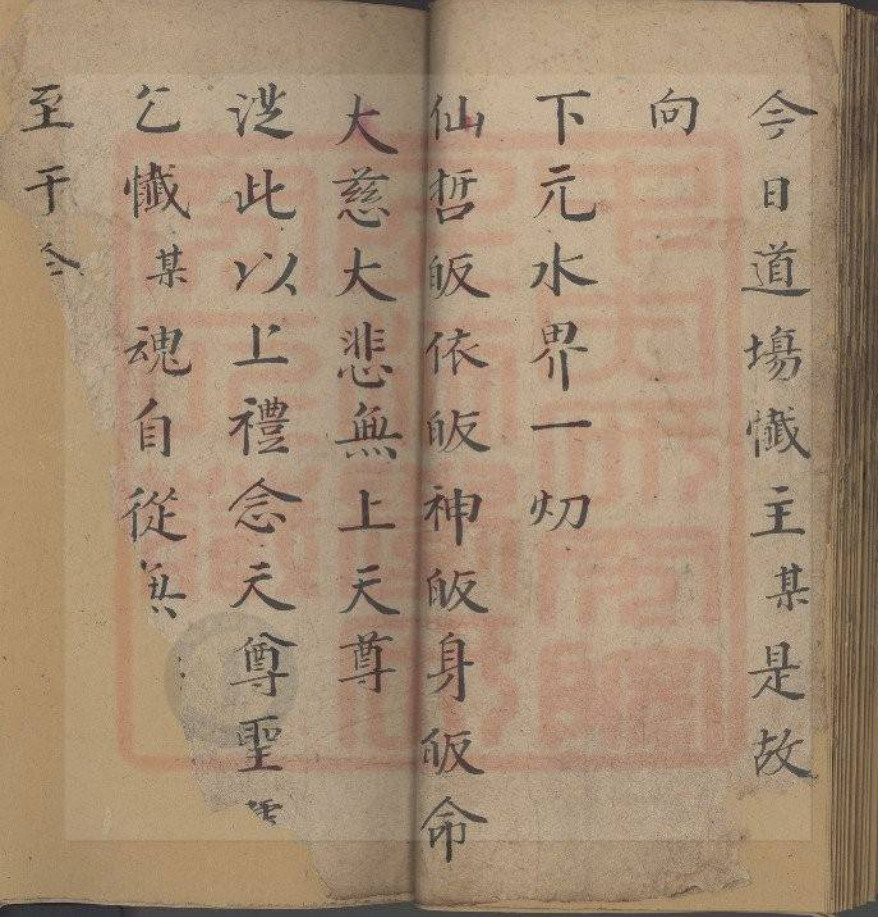 今日道塲懺主某是故
向
下元水界一㓛
仙哲皈依皈神皈身皈命
大慈大悲無上天尊
従此以上禮念天尊聖
乞懺某魂自從
至于